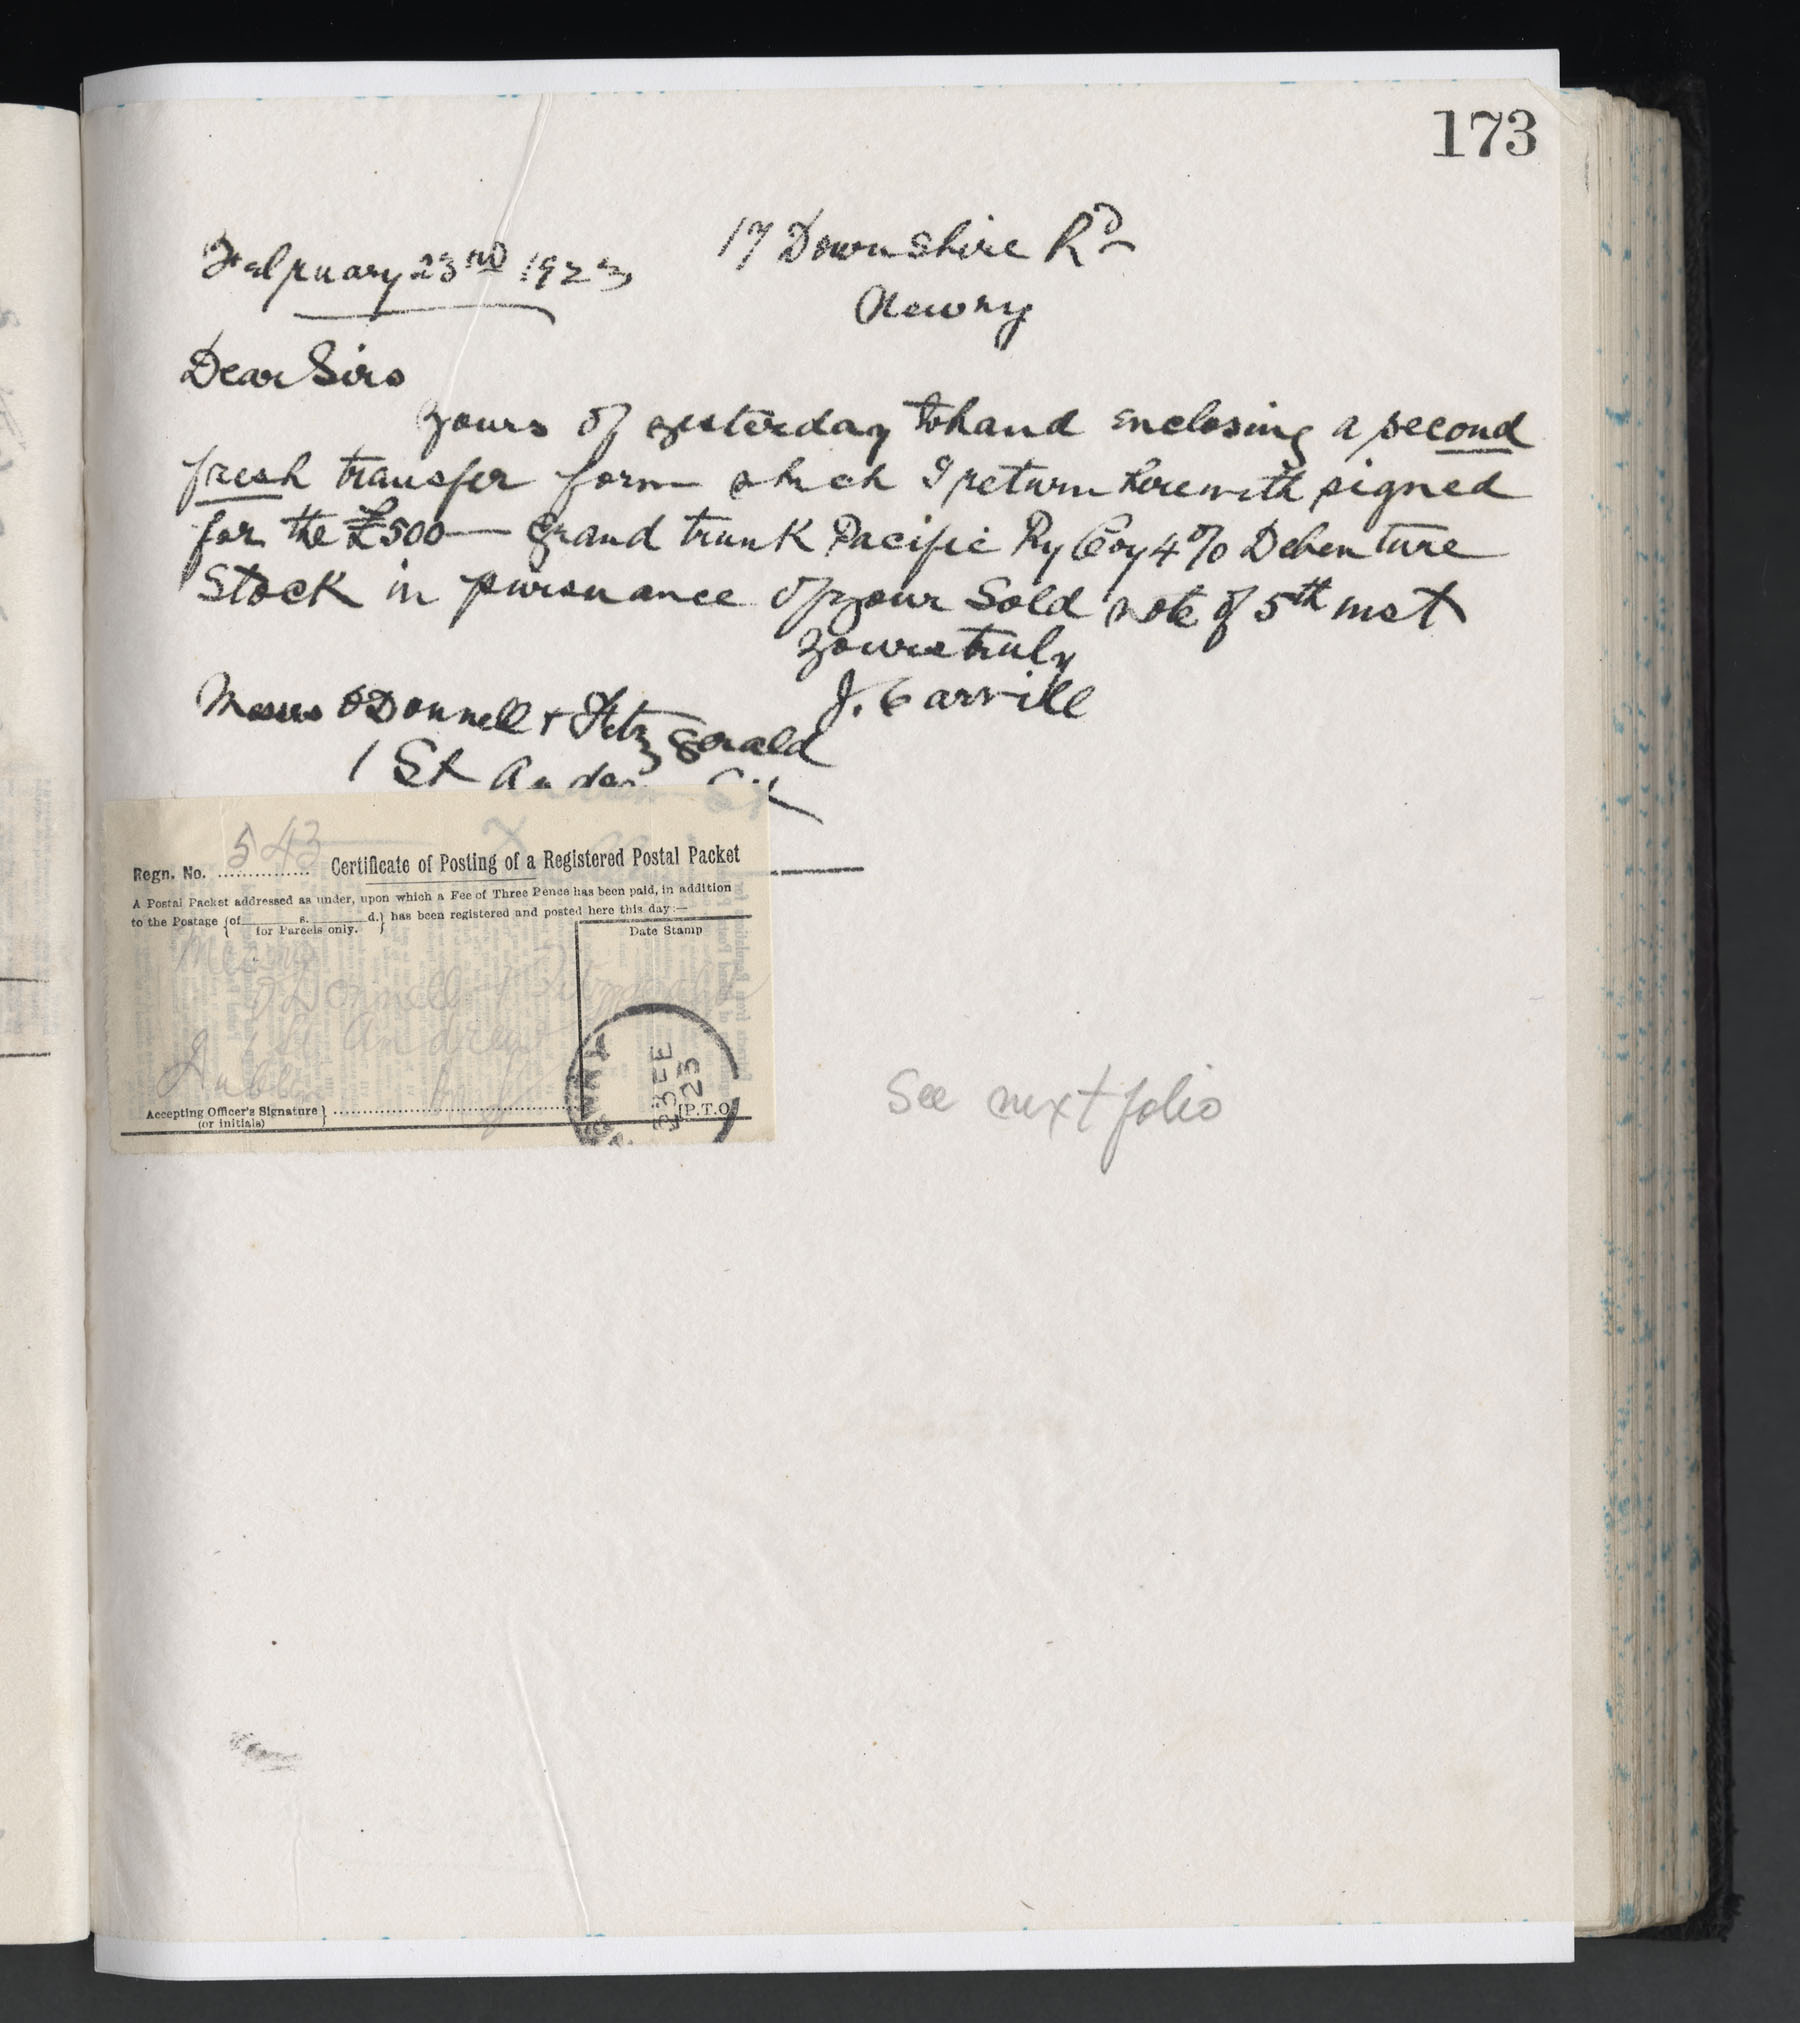 173
17 Downshire Rd
February 23rd 1923
Newry
Dear Sirs
yours of yesterday to hand enclosing a second
fresh transfer form which I return herewith signed
for the £500— Grand trunk Pacific Ry Coy 4% Debenture
Stock in pursuance of your Sold note of 5th inst
yours truly
J. Carvill
Messrs O'Donnell & Fitzgerald
1 St Andrew
Regn. No. 543 Certificate of Posting of a Registered Postal Packet
A Postal Packet addressed as under, upon which a Fee of Three Pence has been paid, in addition
to the Postage {of s. d.} has been registered and posted here this day:—
for Parcels only.
Date Stamp
Messrs
O'Donnell & Fitzgerald
1 St Andrew
Dublin
23 FE
23
Accepting Officer's Signature}
(or initials)
[P.T.O.
See next folio